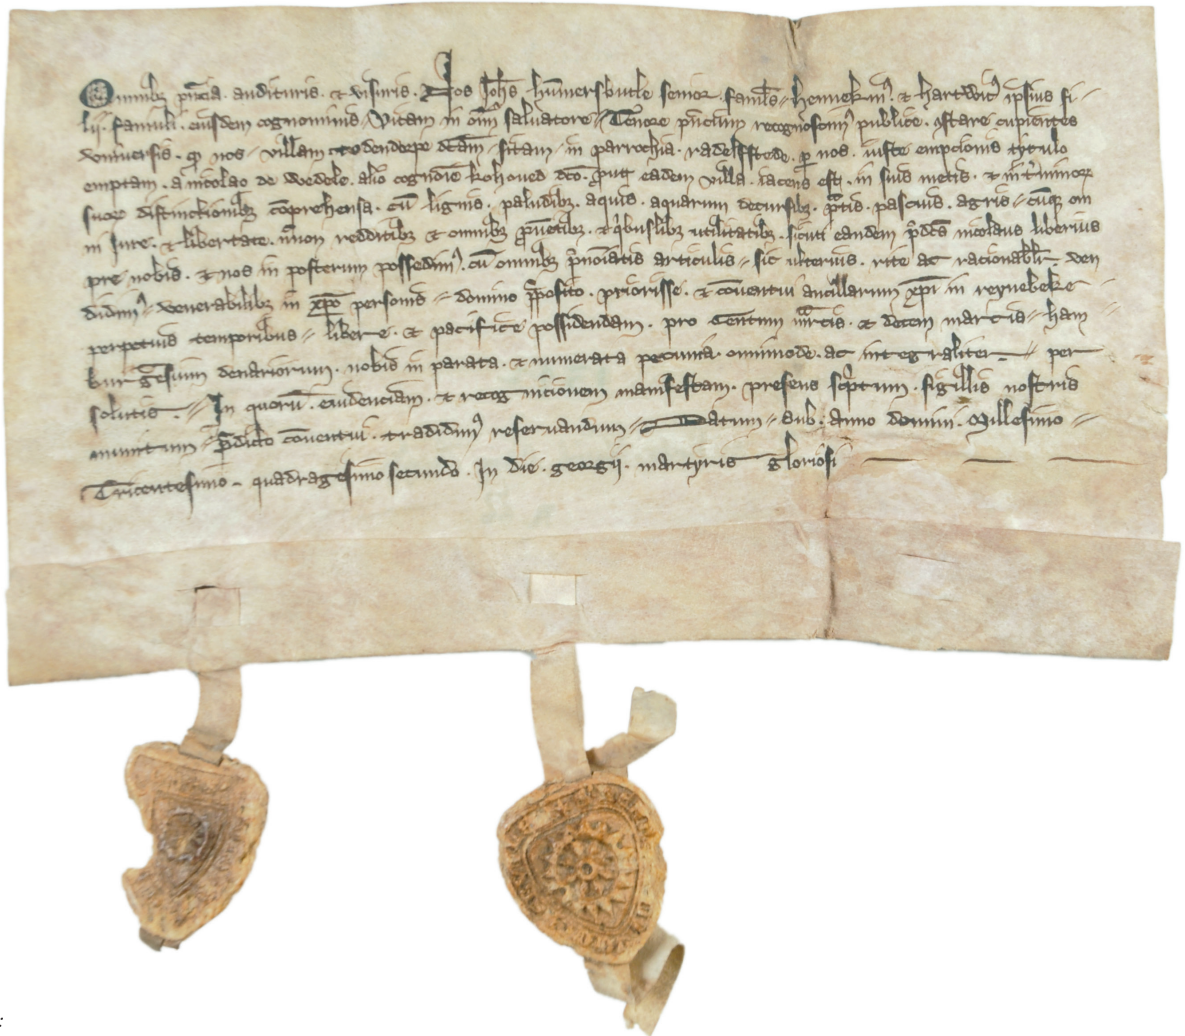 Omnibꝫ pn̄cia. audituris. ⁊ visuris. Nos Joh̄s hūmersbutle senior. famlꝰ. hennekinꝰ. ⁊ hartwicꝰ ip̄sius fi-
lij. famuli. eiusdem cognominis. Vitam in om̄i salvatore. Tenore pn̄cium recognoscimꝰ publice. ꝯstare cupientes
vniuersis. ꝙ nos. villam todendorpe dc̄am. sitam. in parrochia. radelfstede. ꝑ nos. iuste empcionis tytulo
emptam. a nicolao de wedele. alio cognoīe kohoued dc̄o. prout eadem villa. iacens est. in suis metis. ⁊ int̓minoꝝ
suoꝝ distinctionibꝫ cōprehensa. cū lignis. paludibꝫ. aquis. aquarum decursibꝫ. pratis. pascuis. agris. cūqꝫ om
ni Jure. ⁊ libertate. nōn redditibꝫ ⁊ omnibꝫ ꝓuētibꝫ. ⁊ qibuslibꝫ utilitatibꝫ. sicuti eandem p̄dc̄s nicolaus liberius
pre nobis. ⁊ nos in posterum possedimꝰ. cū omnibꝫ p̄noīatis articulis. sic ulterius. rite ac racionabilr̄. ven
didimꝰ. venerabilibꝫ in xp̄o personis. domino p̄posito. priorisse. ⁊ cōuentui ancillarum xp̄i in reynebeke
perpetuis temporibus. libere. ⁊ pacifice possidendam. pro Centum mr̄cis. ⁊ decem marcis. ham
burgēsium denariorum. nobis in parata. ⁊ numerata pecunia. omnimode. ac integraliter. per
solutis. In quorū. euidenciam. ⁊ recognicionem manifestam. presens scͥptum. sigillis nostris
munitum. p̄dicto cōuentui. tradidimꝰ reseruandum. Datum. sub. anno domini. Millesimo
Tricentesimo. quadragesimo secundo. In die. georgij. martyris gloriosi